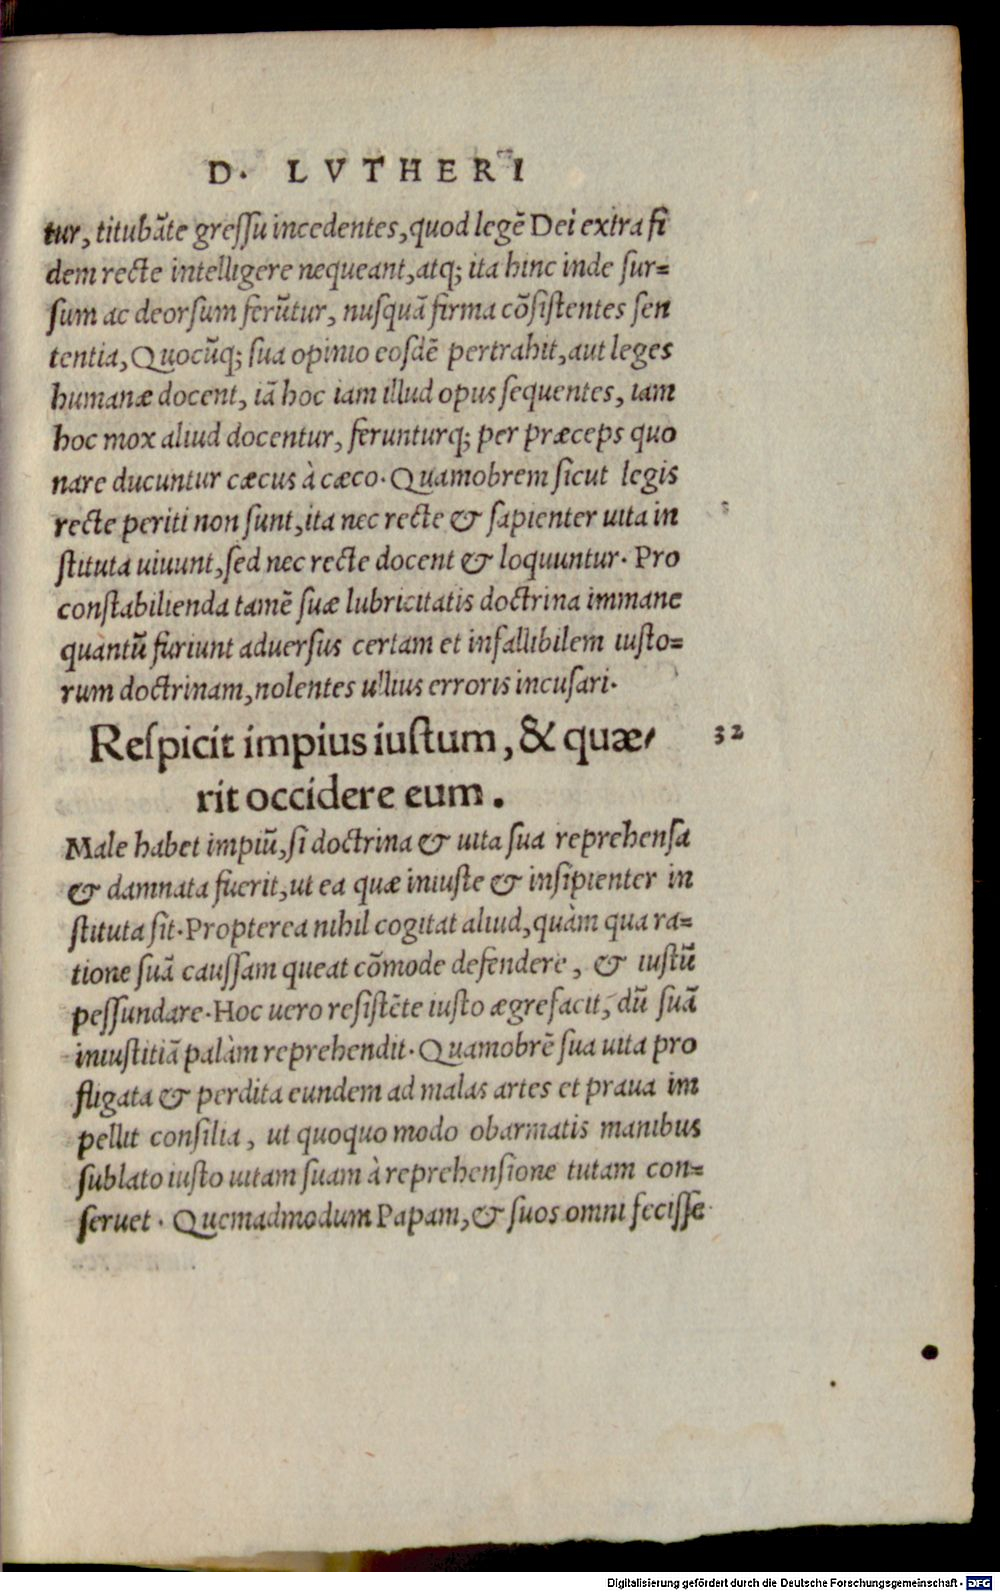 D. LVTHERI
tur, titubãte greſſu incedentes, quod legẽ Dei extra fi
dem recte intelligere nequeant, atq; ita hinc inde ſur=
ſum ac deorſum ferũtur, nuſquã firma cõſiſtentes ſen
tentia, Quocũq; ſua opinio eoſdẽ pertrahit, aut leges
humanæ docent, iã hoc iam illud opus ſequentes, iam
hoc mox aliud docentur, ferunturq; per præceps quo
nare ducuntur cæcus à cæco. Quamobrem ſicut legis
recte periti non ſunt, ita nec recte & ſapienter uita in
ſtituta uiuunt, ſed nec recte docent & loquuntur. Pro
conſtabilienda tamẽ ſuæ lubricitatis doctrina immane
quantũ furiunt aduerſus certam et infallibilem iuſto=
rum doctrinam, nolentes ullius erroris incuſari.
Reſpicit impius iuſtum, & quæ-
rit occidere eum.
32
Male habet impiũ, ſi doctrina & uita ſua reprehenſa
& damnata fuerit, ut ea quæ iniuſte & inſipienter in
ſtituta ſit. Propterea nihil cogitat aliud, quàm qua ra=
tione ſuã cauſſam queat cõmode defendere, & iuſtũ
peſſundare. Hoc uero reſiſtẽte iuſto ægre facit, dũ ſuã
iniuſtitiã palàm reprehendit. Quamobrẽ ſua uita pro
fligata & perdita eundem ad malas artes et praua im
pellit conſilia, ut quoquo modo obarmatis manibus
ſublato iuſto uitam ſuam à reprehenſione tutam con=
ſeruet. Quemadmodum Papam, & ſuos omni feciſſe
Digitalisierung gefördert durch die Deutsche Forschungsgemeinschaft - DFG